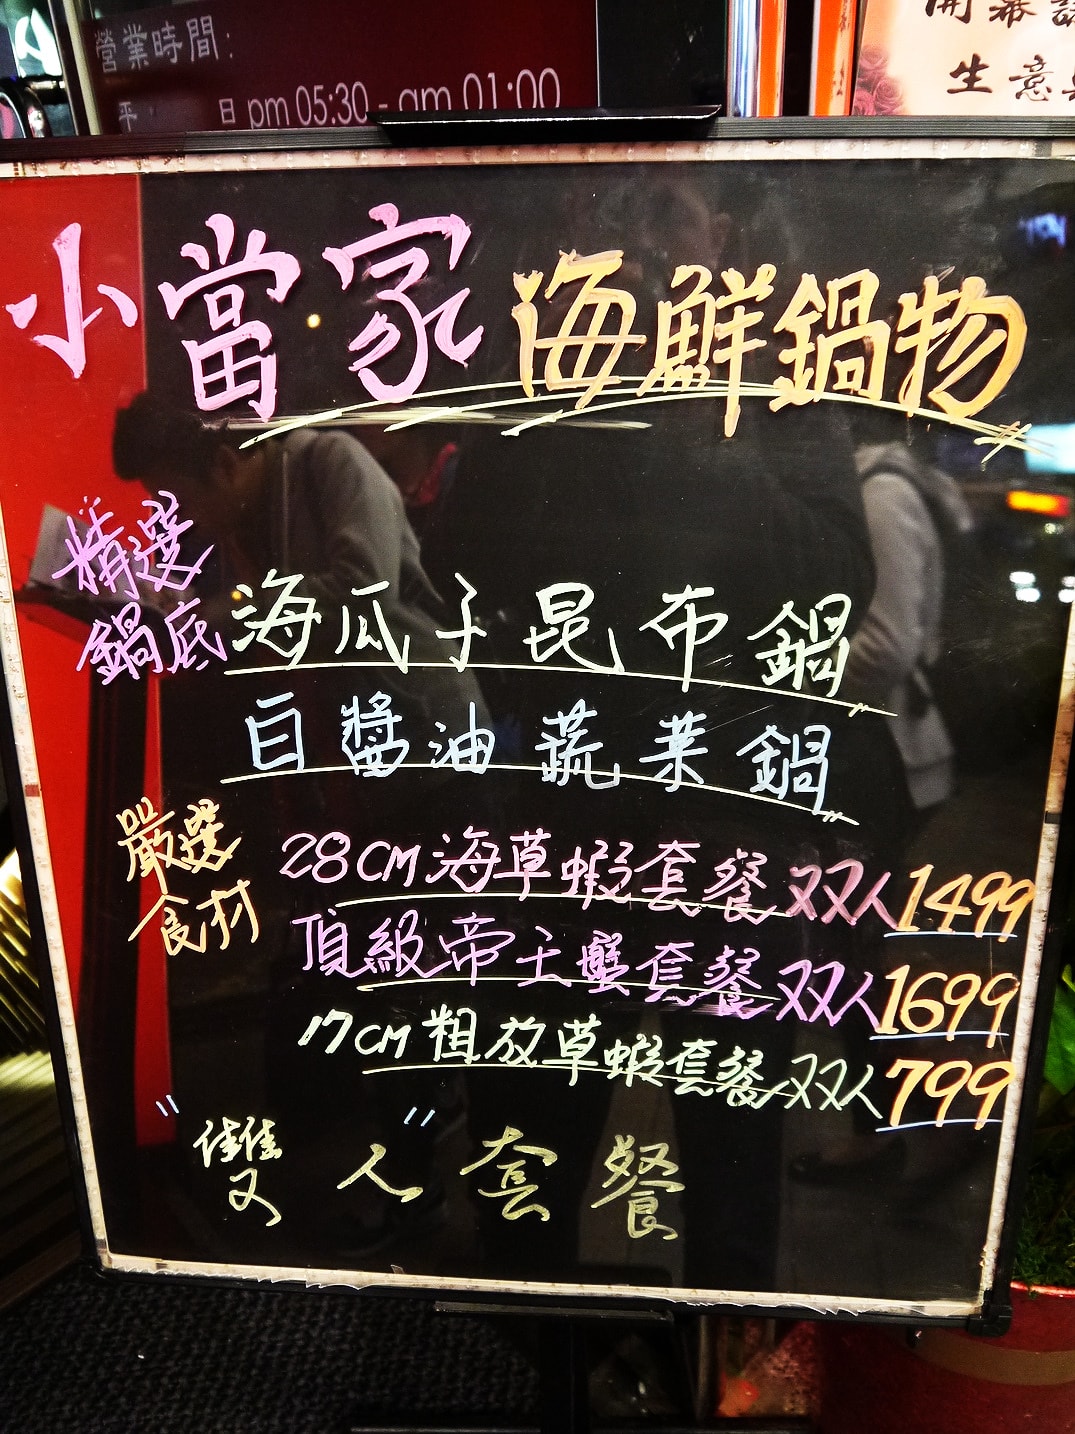 營業時間:
平 日 pm 05:30 - am 01:00
開幕
生意
小當家 海鮮鍋物
精選
鍋底
海瓜子昆布鍋
白醬油蔬菜鍋
嚴選
食材
28CM海草蝦套餐双人1499
頂級帝王蟹套餐双人1699
17CM粗放草蝦套餐双人799
"雙人"套餐